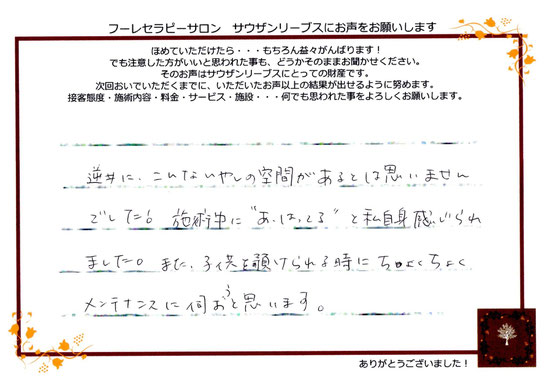 フーレセラピーサロン　サウザンリーブスにお声をお願いします
ほめていただけたら・・・もちろん益々がんばります！
でも注意した方がいいと思われた事も、どうかそのままお聞かせください。
そのお声はサウザンリーブスにとっての財産です。
次回おいでいただくまでに、いただいたお声以上の結果が出せるように努めます。
接客態度・施術内容・料金・サービス・施設・・・何でも思われた事をよろしくお願いします。
逆井に、こんないやしの空間があるとは思いません
でした！。施術中に“あ、はいる”と私自身感じられ
ました。また、子供を預けられる時にちょくちょく
メンテナンスに伺おうと思います。
ありがとうございました！